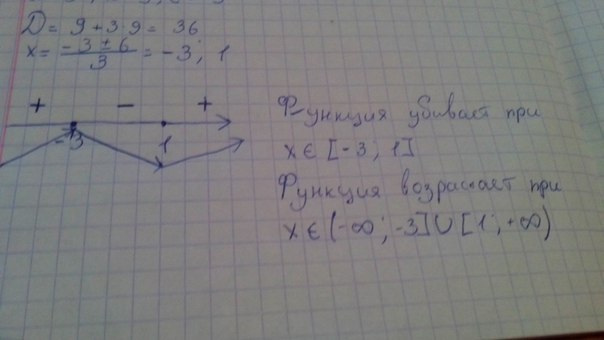 D = 9 + 3·9 = 36
x = (-3 ± 6)/3 = -3; 1
+ - +
-3 1
Функция убивает при
x ∈ [-3; 1]
Функция возрастает при
x ∈ (-∞; -3] ∪ [1; +∞)